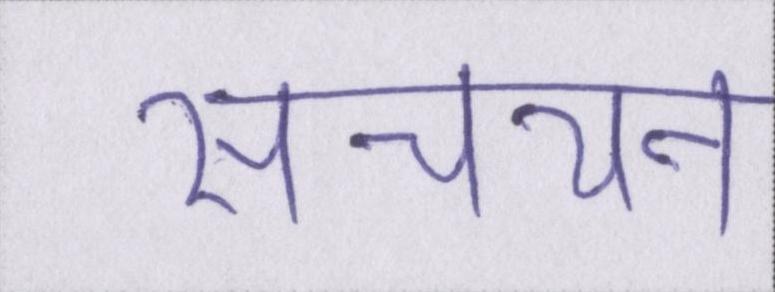 सचयन